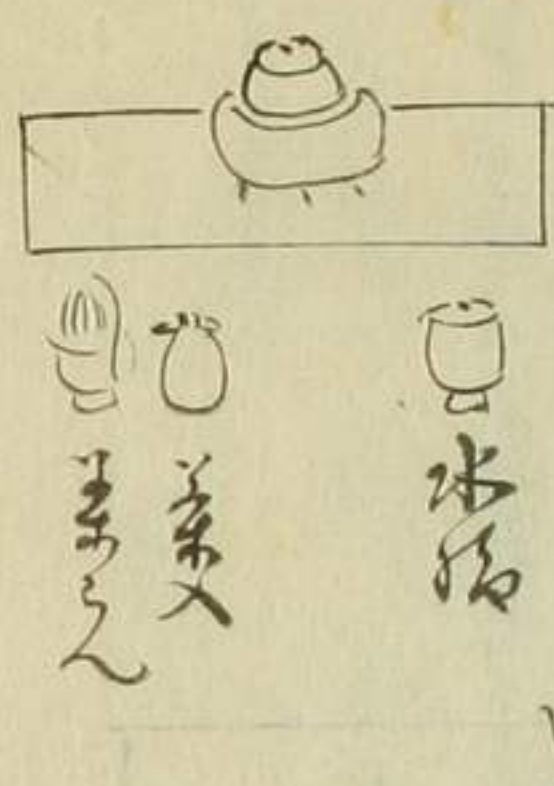 水指
茶入
茶わん